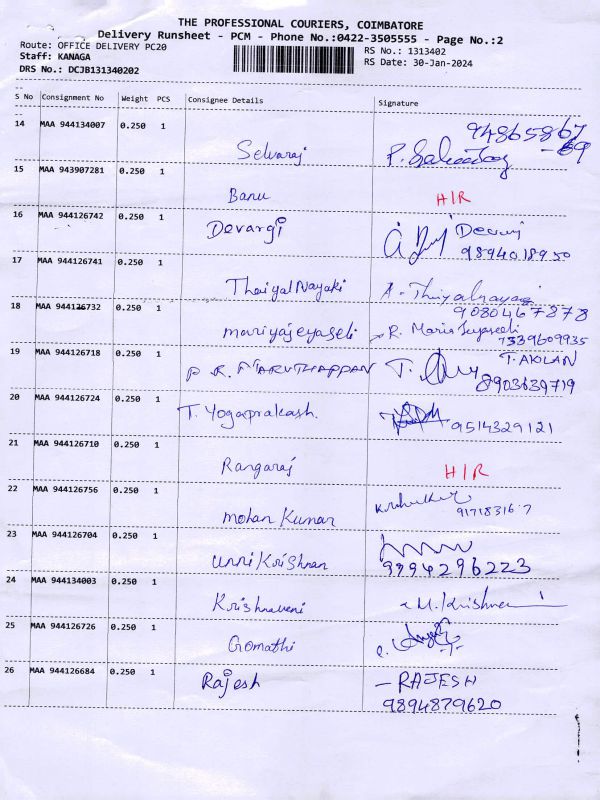 THE PROFESSIONAL COURIERS, COIMBATORE
Delivery Runsheet - PCM - Phone No.:0422-3505555 - Page No.:2
Route: OFFICE DELIVERY PC20
RS No.: 1313402
Staff: KANAGA
RS Date: 30-Jan-2024
DRS No.: DCJB131340202
S No Consignment No Weight PCS Consignee Details Signature
14 MAA 944134007 0.250 1 Selvaraj
15 MAA 943907281 0.250 1 Banu H/R
16 MAA 944126742 0.250 1 Devargi
9894018950
17 MAA 944126741 0.250 1 ThaiyalNayaki
9080467878
18 MAA 944126732 0.250 1 mariyajeyaseli R. Maria
7339609935
19 MAA 944126718 0.250 1 P. R. MARUTHAPPAN T. AKILAN
8903639719
20 MAA 944126724 0.250 1 T. Yogaprakash.
9514329121
21 MAA 944126710 0.250 1 Rangaraj H/R
22 MAA 944126756 0.250 1 mohan Kumar
23 MAA 944126704 0.250 1 unni Krishnan
9994296223
24 MAA 944134003 0.250 1 Krishnaveni
25 MAA 944126726 0.250 1 Gomathi
26 MAA 944126684 0.250 1 Rajesh - RAJESH
9894879620